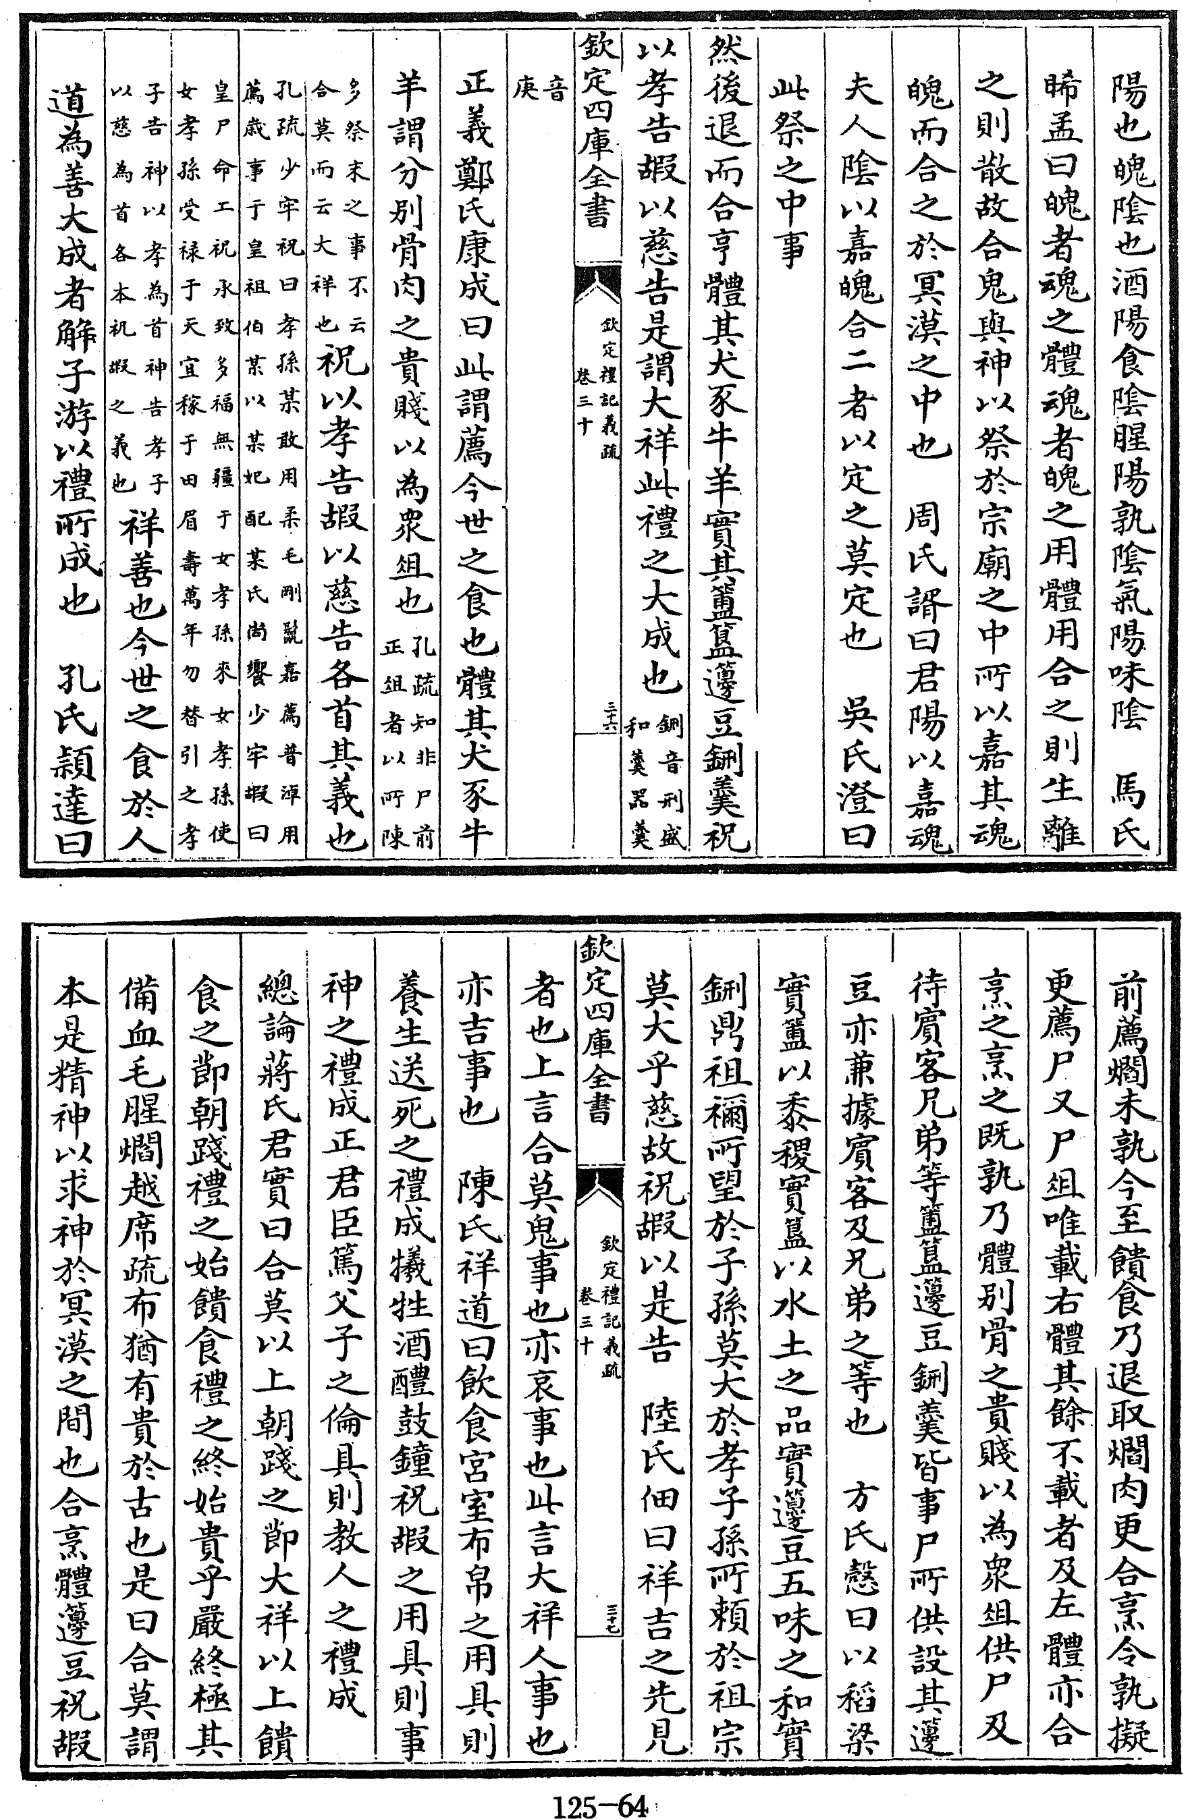 陽也魄陰也酒陽食陰腥陽孰陰氣陽味陰　馬氏
晞孟曰魄者魂之體魂者魄之用體用合之則生離
之則散故合鬼與神以祭於宗廟之中所以嘉其魂
魄而合之於冥漠之中也　周氏諝曰君陽以嘉魂
夫人陰以嘉魄合二者以定之莫定也　吳氏澄曰
此祭之中事
然後退而合亨體其犬豕牛羊實其簠簋籩豆鉶羹祝
以孝告嘏以慈告是謂大祥此禮之大成也鉶音刑盛
和羹器羹
欽定四庫全書
欽定禮記義疏
卷三十
三十六
音
庚
正義鄭氏康成曰此謂薦今世之食也體其犬豕牛
羊謂分別骨肉之貴賤以為眾俎也孔疏知非尸前
正俎者以所陳
多祭末之事不云
合莫而云大祥也祝以孝告嘏以慈告各首其義也
孔疏少牢祝曰孝孫某敢用柔毛剛鬣嘉薦普淖用
薦歲事于皇祖伯某以某妃配某氏尚饗少牢嘏曰
皇尸命工祝承致多福無疆于女孝孫來女孝孫使
女孝孫受祿于天宜稼于田眉壽萬年勿替引之孝
子告神以孝為首神告孝子
以慈為首各本祝嘏之義也祥善也今世之食於人
道為善大成者解子游以禮所成也　孔氏穎達曰
前薦爓未孰今至饋食乃退取爓肉更合烹令孰擬
更薦尸又尸俎唯載右體其餘不載者及左體亦合
烹之烹之既孰乃體別骨之貴賤以為眾俎供尸及
待賓客兄弟等簠簋籩豆鉶羹皆事尸所供設其籩
豆亦兼據賓客及兄弟之等也　方氏慤曰以稻粱
實簠以黍稷實簋以水土之品實籩豆五味之和實
鉶鼎祖禰所望於子孫莫大於孝子孫所賴於祖宗
莫大乎慈故祝嘏以是告　陸氏佃曰祥吉之先見
欽定四庫全書
欽定禮記義疏
卷三十
三十七
者也上言合莫鬼事也亦哀事也此言大祥人事也
亦吉事也　陳氏祥道曰飲食宮室布帛之用具則
養生送死之禮成犧牲酒醴鼓鐘祝嘏之用具則事
神之禮成正君臣篤父子之倫具則教人之禮成
總論蔣氏君實曰合莫以上朝踐之節大祥以上饋
食之節朝踐禮之始饋食禮之終始貴乎嚴終極其
備血毛腥爓越席疏布猶有貴於古也是曰合莫謂
本是精神以求神於冥漠之間也合烹體籩豆祝嘏
125-64